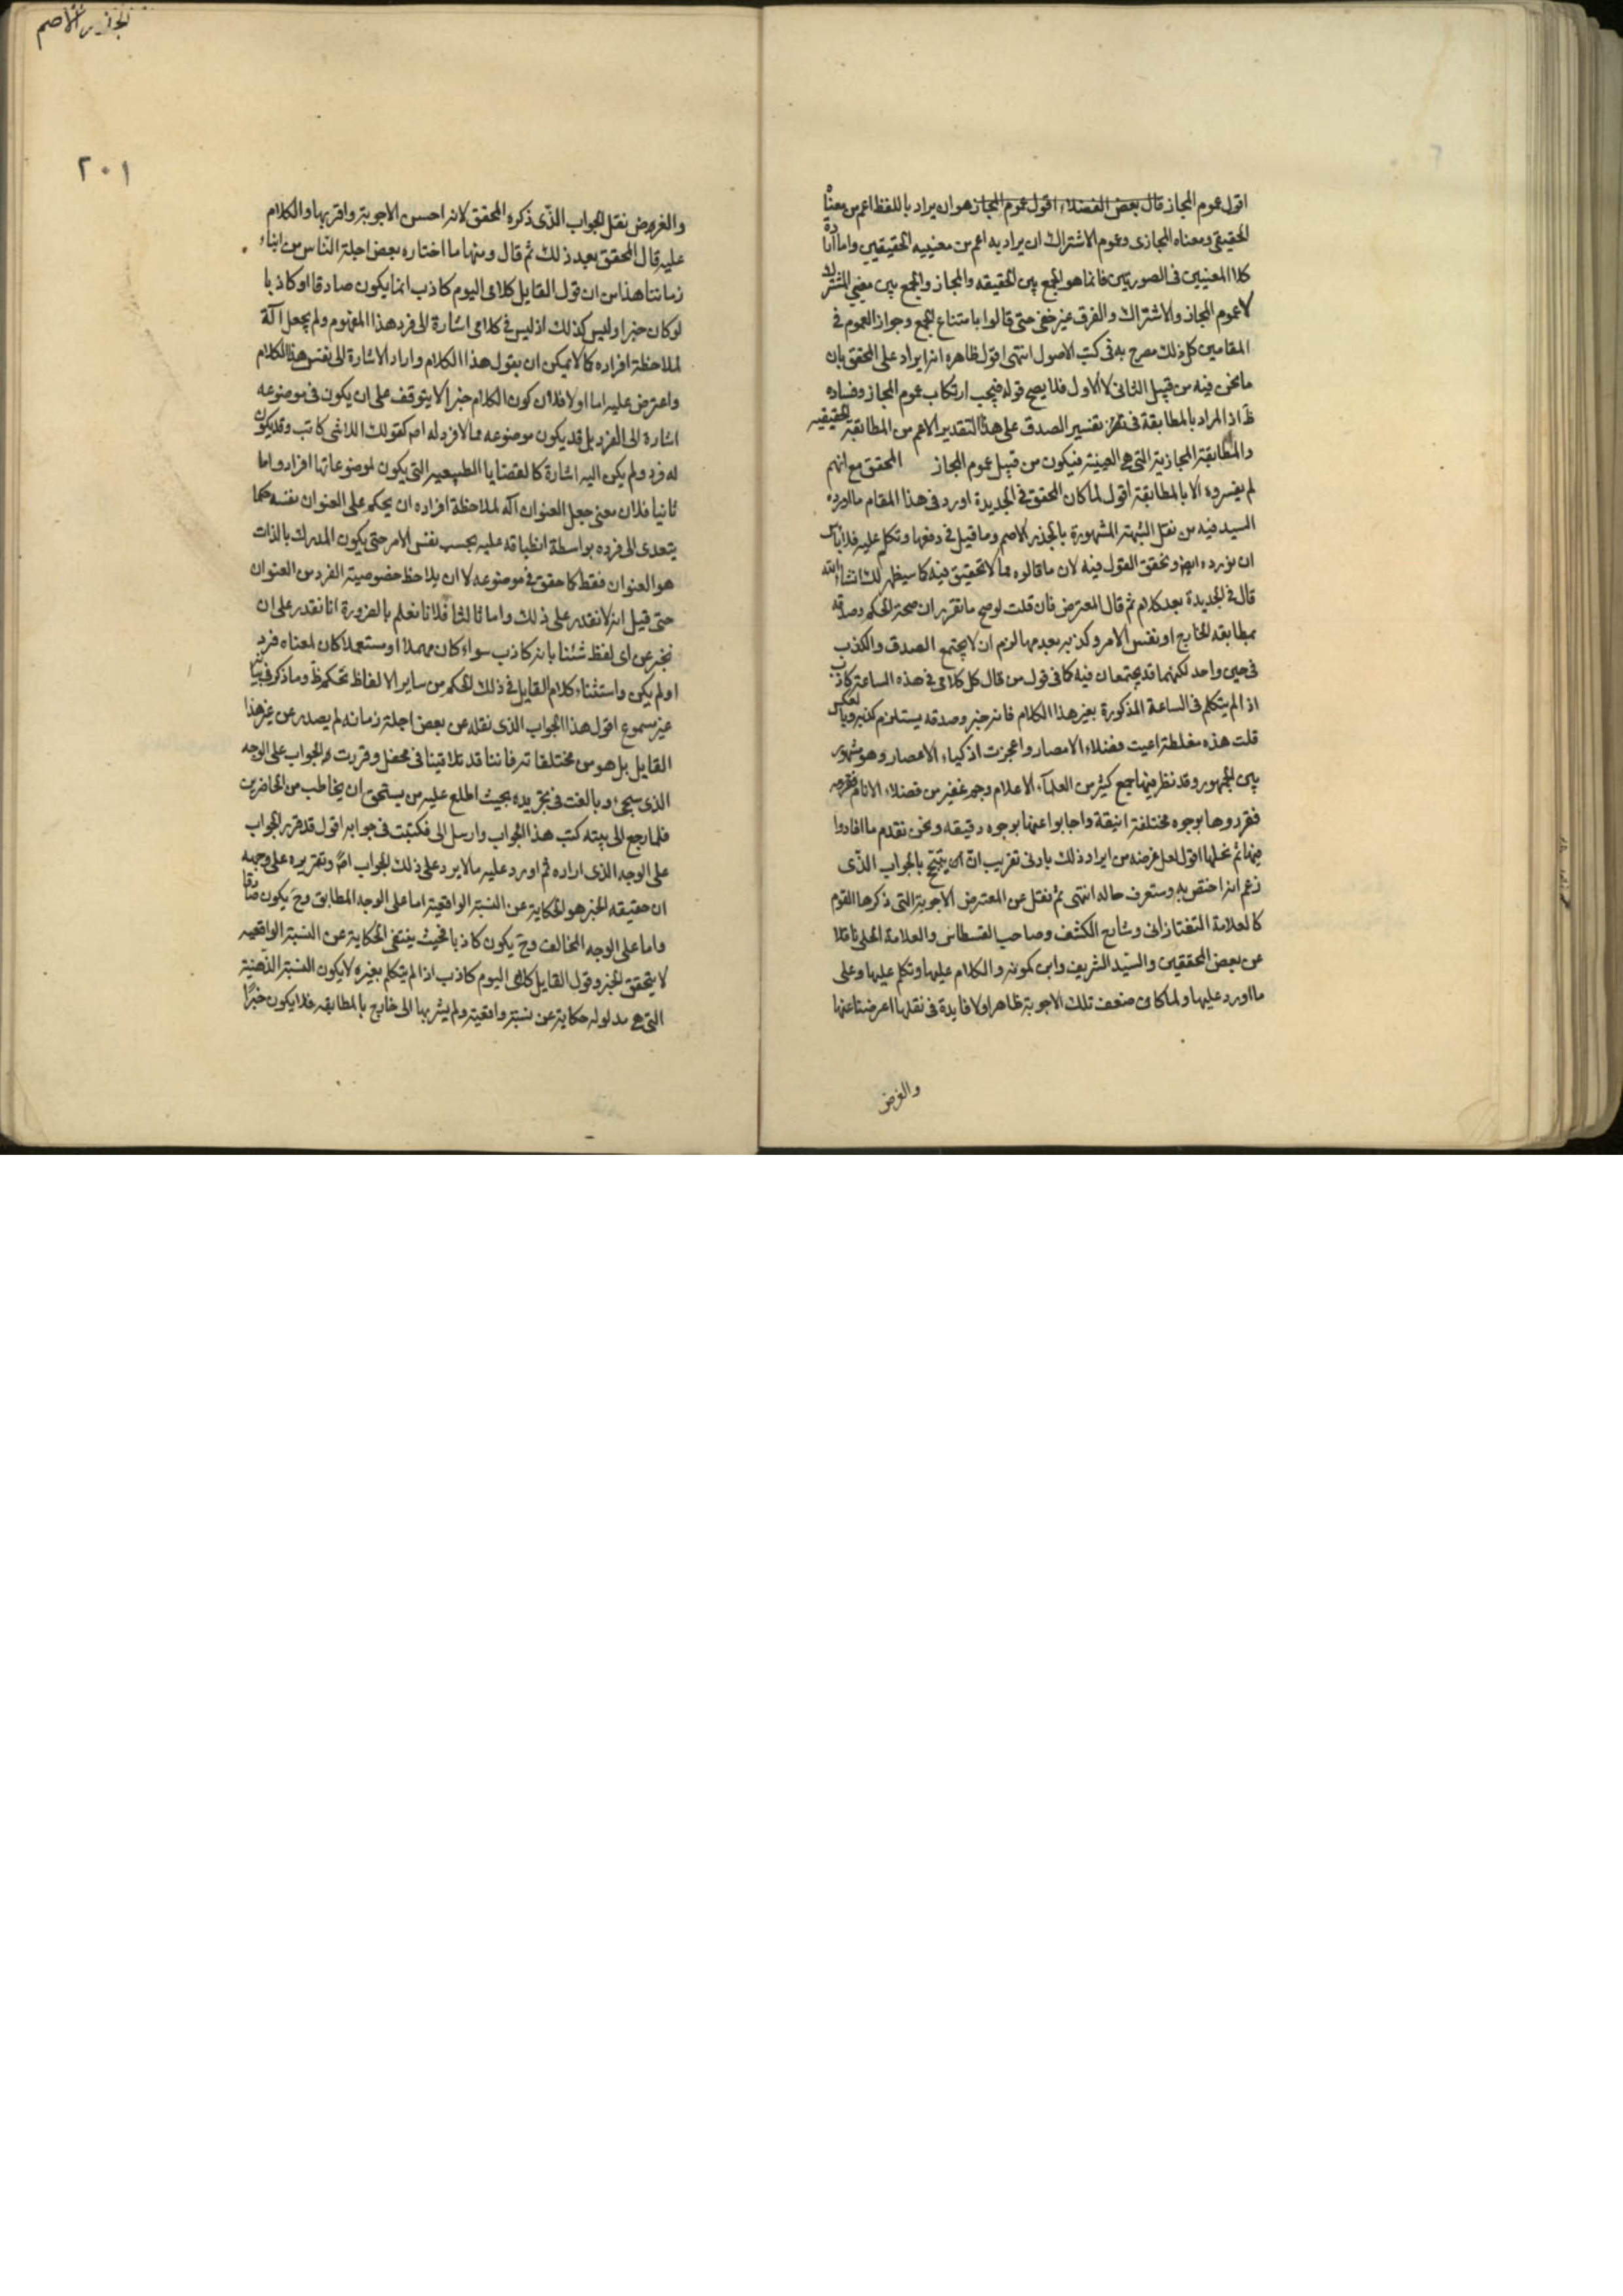 اقول عموم المجاز قال بعض الفضلاء اقول عموم المجاز هو ان يراد باللفظ اعم من معناه
الحقيقى ومعناه المجازى وعموم الاشتراك ان يراد به اعم من معنييه الحقيقيين واما ارادة
كلا المعنيين فى الصورتين فانما هو الجمع بين الحقيقه والمجاز والجمع بين معنيى المشترك
لا عموم المجاز والاشتراك والفرق غير خفى حتى قالوا بامتناع الجمع وجواز العموم فى
المقامين كل ذلك مصرح به فى كتب الاصول انتهى اقول ظاهره انه ايراد على المحقق بان
ما نحن فيه من قبيل الثانى لا الاول فلا يصح قوله فيجب ارتكاب عموم المجاز وفساده
ظ اذ المراد بالمطابقة فى تفسير الصدق على هذا التقدير الاعم من المطابقة الحقيقيه
والمطابقة المجازية التى هى العينية فيكون من قبيل عموم المجاز المحقق مع انهم
لم يفسروه الا بالمطابقة اقول لما كان المحقق فى الجديدة اورد فى هذا المقام ما اورده
السيد فيه من نقل الشبهة المشهورة بالجذر الاصم وما قيل فى دفعها وتكلم عليه فلا باس
ان نورده ايضا ونحقق القول فيه لان ما قالوه مما لا تحقيق فيه كما سيظهر لك انشاء الله
قال فى الجديدة بعد كلام ثم قال المعترض فان قلت لو صح ما تقرر ان صحة الحكم وصدقه
بمطابقه الخارج او نفس الامر وكذبه بعدمها لزم ان لا يجتمع الصدق والكذب
فى حين واحد لكنهما قد يجتمعان فيه كما فى قول من قال كل كلامى فى هذه الساعة كاذب
اذا لم يتكلم فى الساعة المذكورة بغير هذا الكلام فانه خبر وصدقه يستلزم كذبه وبالعكس
قلت هذه مغلطة اعيت فضلاء الامصار واعجزت اذكياء الاعصار وهو مشهور
بين الجمهور وقد نظر فيها جمع كثير من العلماء الاعلام وجم غفير من فضلاء الانام
فقرروها بوجوه مختلفة انيقة واجابوا عنها بوجوه دقيقه ونحن نقدم ما افادوا
فيها ثم نحلها اقول لعل غرضه من ايراد ذلك بادنى تقريب ان يتبجح بالجواب الذى
زعم انه اختص به وستعرف حاله انتهى ثم نقل عن المعترض الاجوبة التى ذكرها القوم
كالعلامة التفتازانى وشارح الكشف وصاحب القسطاس والعلامة الحلى ناقلا
عن بعض المحققين والسيد الشريف وابن كمونه والكلام عليها وتكلم عليها وعلى
ما اورد عليها ولما كان ضعف تلك الاجوبة ظاهرا ولا فايدة فى نقلها اعرضنا عنها
والغرض
٢٠١
والغرض نقل الجواب الذى ذكره المحقق لانه احسن الاجوبة واقربها والكلام
عليه قال المحقق بعد ذلك ثم قال ومنها ما اختاره بعض اجلة الناس من ابناء
زماننا هذا من ان قول القايل كلامى اليوم كاذب انما يكون صادقا او كاذبا
لو كان خبرا وليس كذلك اذ ليس فى كلامى اشارة الى فرد هذا المفهوم ولم يجعل آلة
لملاحظة افراده كما لا يمكن ان يقول هذا الكلام واراد الاشارة الى نفس هذا الكلام
واعترض عليه اما اولا فلان كون الكلام خبرا لا يتوقف على ان يكون فى موضوعه
اشارة الى الفرد بل قد يكون موضوعه مما لا فرد له اصلا كقولك اللاشى كاتب وقد يكون
له فرد ولم يكن اليه اشارة كالقضايا الطبيعيه التى يكون لموضوعاتها افراد واما
ثانيا فلان معنى جعل العنوان آلة لملاحظة افراده ان يحكم على العنوان نفسه حكما
يتعدى الى فرده بواسطة انطباقه عليه بحسب نفس الامر حتى يكون المدرك بالذات
هو العنوان فقط كما حقق فى موضوعه لا ان يلاحظ خصوصية الفرد من العنوان
حتى قيل انه لا نقدر على ذلك واما ثالثا فلانا نعلم بالضرورة انا نقدر على ان
نخبر عن اى لفظ شئنا بانه كاذب سواء كان مهملا او مستعملا كان لمعناه فرد
او لم يكن واستثناء كلام القايل فى ذلك الحكم من ساير الالفاظ تحكم ظ وما ذكر فى بيانه
غير مسموع اقول هذا الجواب الذى نقله عن بعض اجلة زمانه لم يصدر عن غير هذا
القايل بل هو من مختلقاته فاننا قد تلاقينا فى محفل وقررت له الجواب على الوجه
الذى سيجئ وبالغت فى تجريده بحيث اطلع عليه من يستحق ان يخاطب من الحاضرين
فلما رجع الى بيته كتب هذا الجواب وارسل الى فكتبت فى جوابه اقول قد قرر الجواب
على الوجه الذى اراده ثم اورد عليه ما لا يرد على ذلك الجواب اصلا وتقريره على وجهه
ان حقيقه الخبر هو الحكاية عن النسبة الواقعية اما على الوجه المطابق وح يكون صادقا
واما على الوجه المخالف وح يكون كاذبا فحيث ينتفى الحكاية عن النسبة الواقعيه
لا يتحقق الخبر وقول القايل كلامى اليوم كاذب اذا لم يتكلم بغيره لا يكون النسبة الذهنية
التى هى مدلوله حكاية عن نسبة واقعية ولم يشر بها الى خارج بالمطابقه فلا يكون خبرا